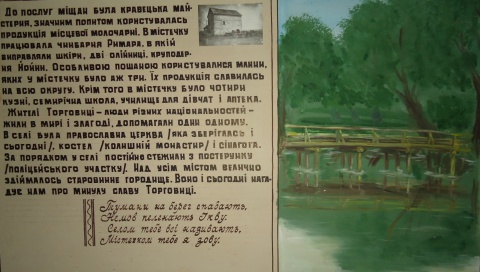 До послуг міщан була кравецька май-
стерня, значним попитом користувалась
продукція місцевої молочарні. В містечку
працювала чинбарня Римара, в якій
виправляли шкіри, дві олійниці, круподер-
ня Нойни. Особливою пошаною користувалися млини,
яких у містечку було аж три. Їх продукція славилась
на всю округу. Крім того в містечку було чотири
кузні, семирічна школа, училище для дівчат і аптека.
Жителі Торговиці – люди різних національностей –
жили в мирі і злагоді, допомагали один одному.
В селі була православна церква /яка збереглась і
сьогодні/, костел /колишній монастир/ і синагога.
За порядком у селі постійно стежили з постерунку
/поліцейського участку/. Над усім містом велично
здіймалось старовинне городище. Воно і сьогодні нага-
дує нам про минулу славу Торговиці.
Тумани на берег спадають,
Немов пеленають Ікву.
Селом тебе всі називають,
Містечком тебе я зову.